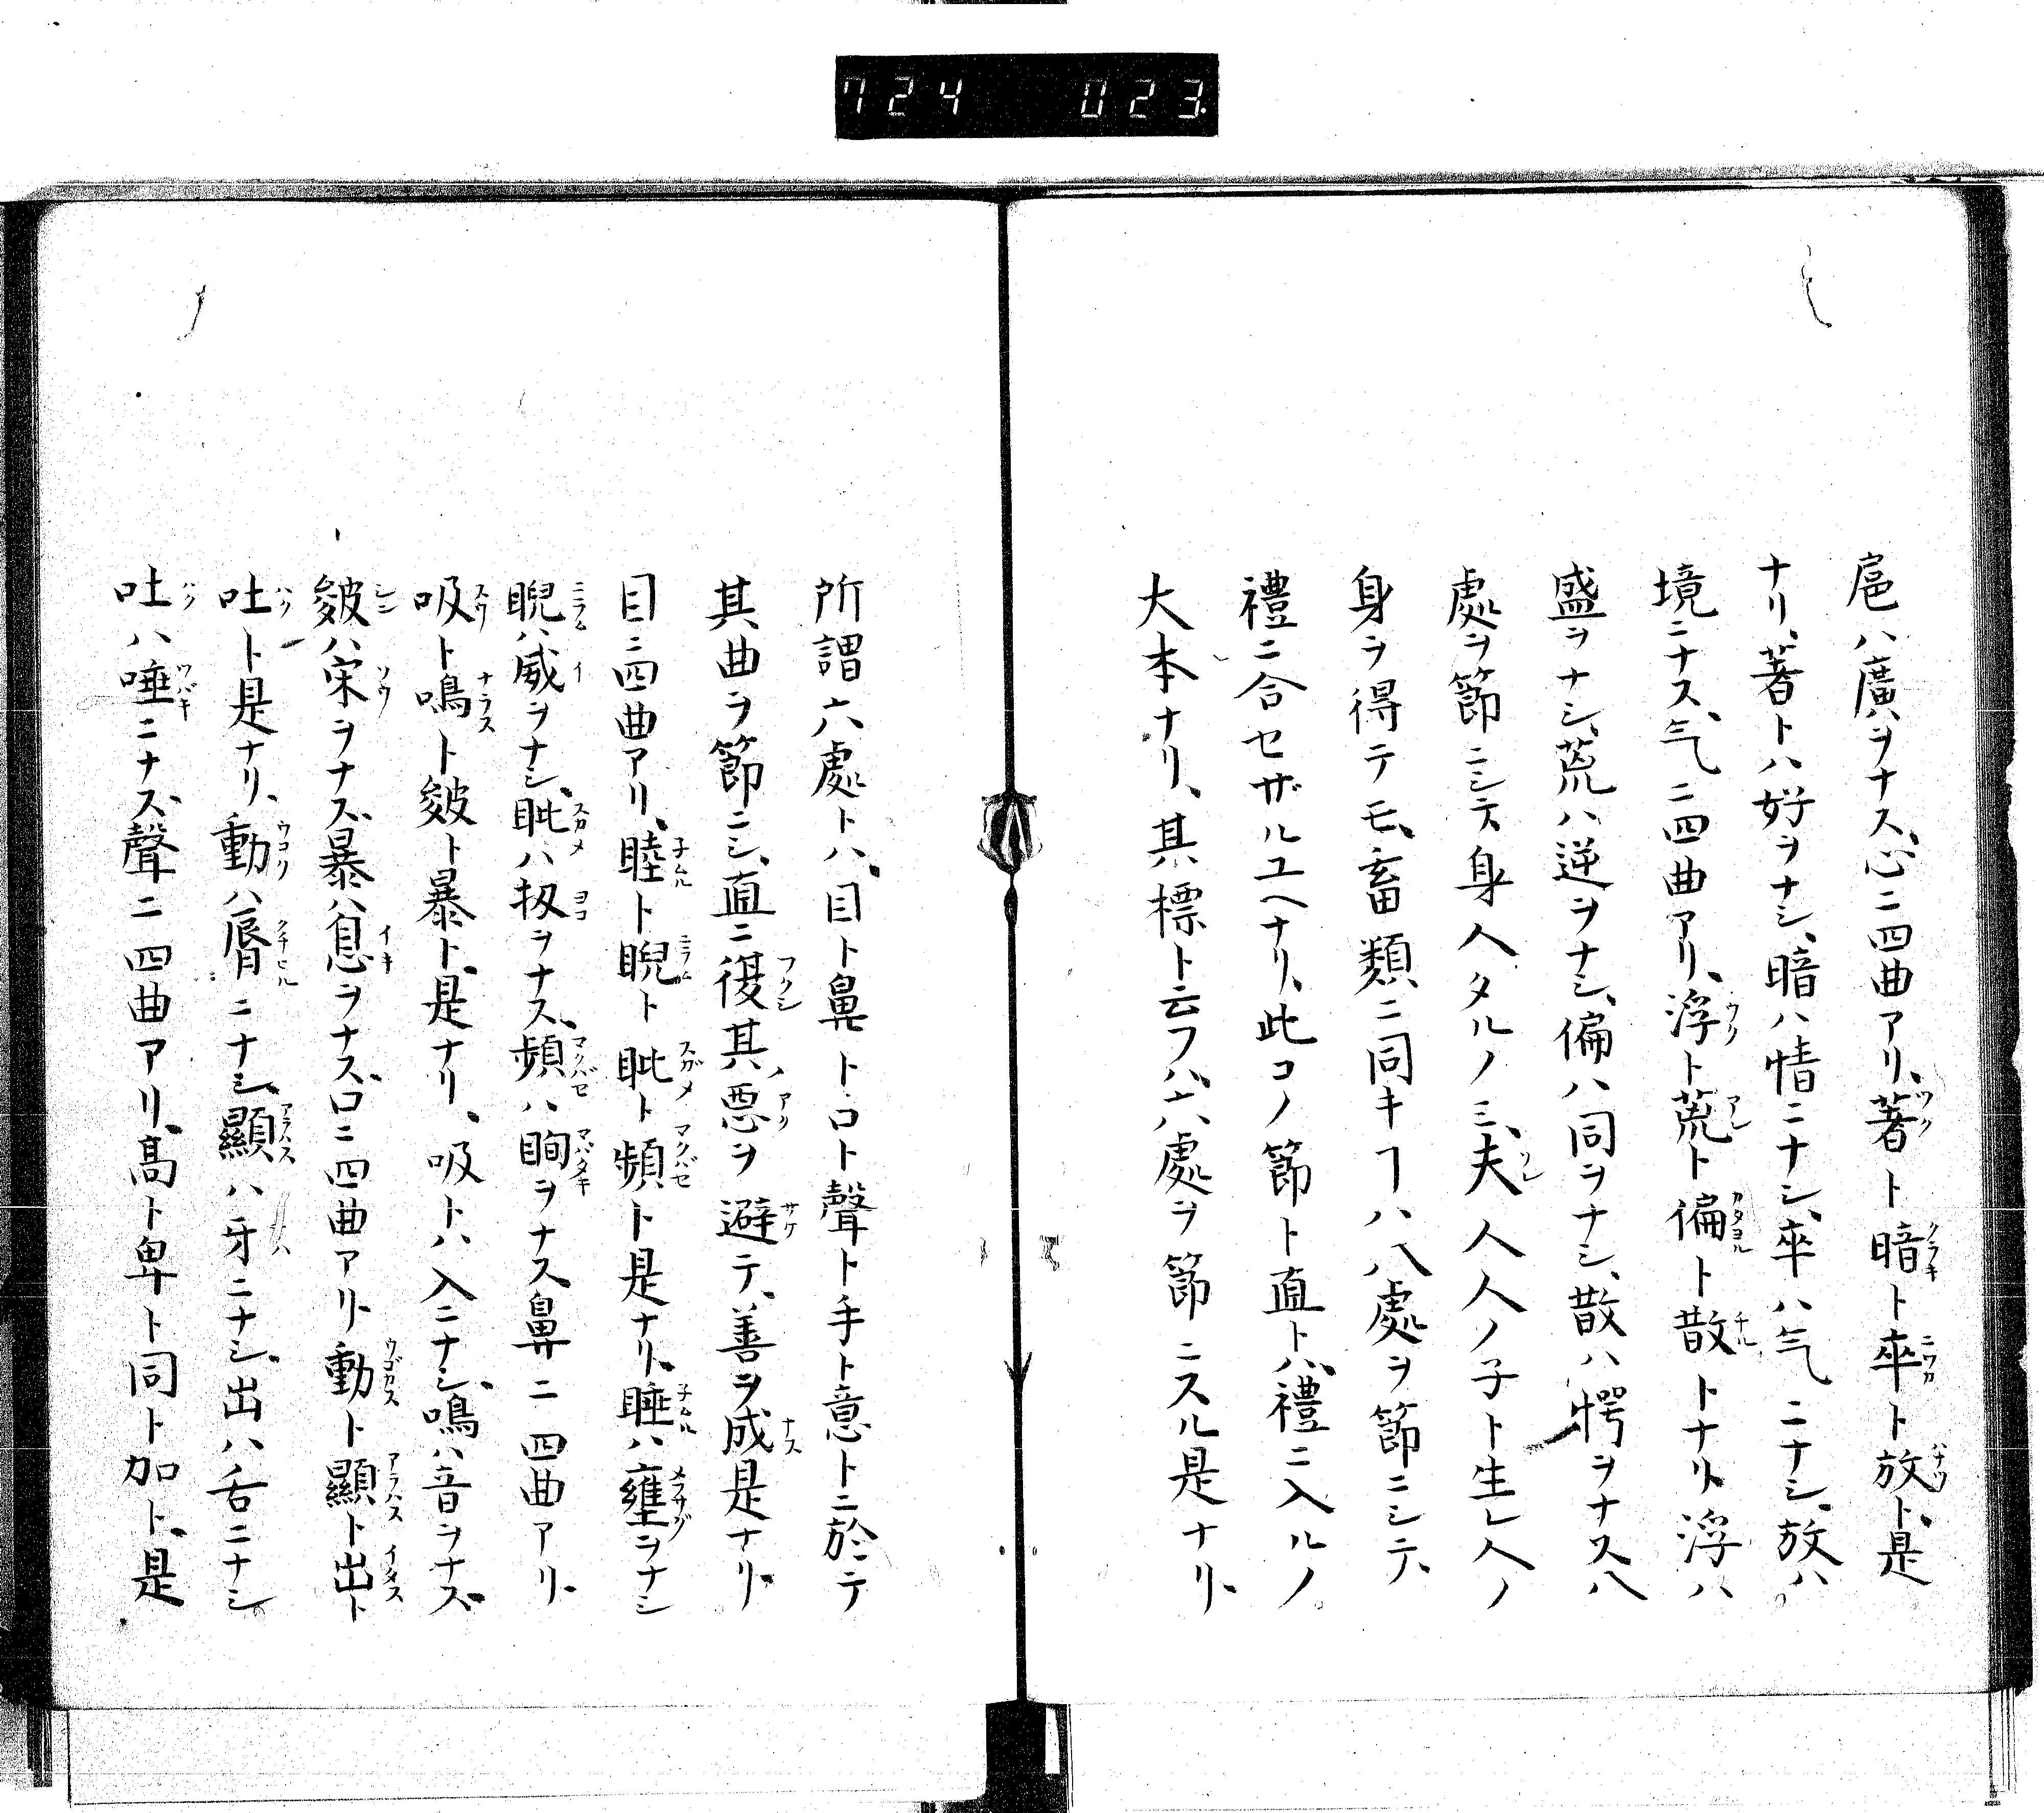 724 023
扈ハ廣ヲナス、心ニ四曲アリ、著ト暗ト卒ト放ト、是
ナリ、著トハ好ヲナシ、暗ハ惜ニナシ、卒ハ气ニナシ、放ハ
境ニナス、气ニ四曲アリ、浮ト荒ト偏ト散トナリ、浮ハ
盛ヲナシ、荒ハ逆ヲナシ、偏ハ同ヲナシ、散ハ愕ヲナス、八
處ヲ節ニシテ、身人タルノミ、夫人人ノ子ト生レ人ノ
身ヲ得テモ、畜類ニ同キヿハ、八處ヲ節ニシテ、
禮ニ合セザルユヘナリ、此コノ節ト直トハ、禮ニ入ルノ
大本ナリ、其標ト云フハ、六處ヲ節ニスル是ナリ、
所謂六處トハ、目ト鼻ト口ト聲ト手ト意トニ於テ
其曲ヲ節ニシ、直ニ復其惡ヲ避テ、善ヲ成是ナリ、
目ニ四曲アリ、睦ト睨ト眦ト頻ト是ナリ、睡ハ壅ヲナシ
睨ハ威ヲナシ、眦ハ扱ヲナス、頻ハ眴ヲナス鼻ニ四曲アリ、
吸ト鳴ト皴ト暴ト、是ナリ、吸トハ入ニナシ、鳴ハ音ヲナス、
皴ハ宋ヲナス、暴ハ息ヲナス、口ニ四曲アリ、動ト顯ト出ト
吐ト是ナリ、動ハ脣ニナシ、顯ハ牙ニナシ、出ハ舌ニナシ
吐ハ唾ニナス、聲ニ四曲アリ、高ト卑ト同ト加ト、是